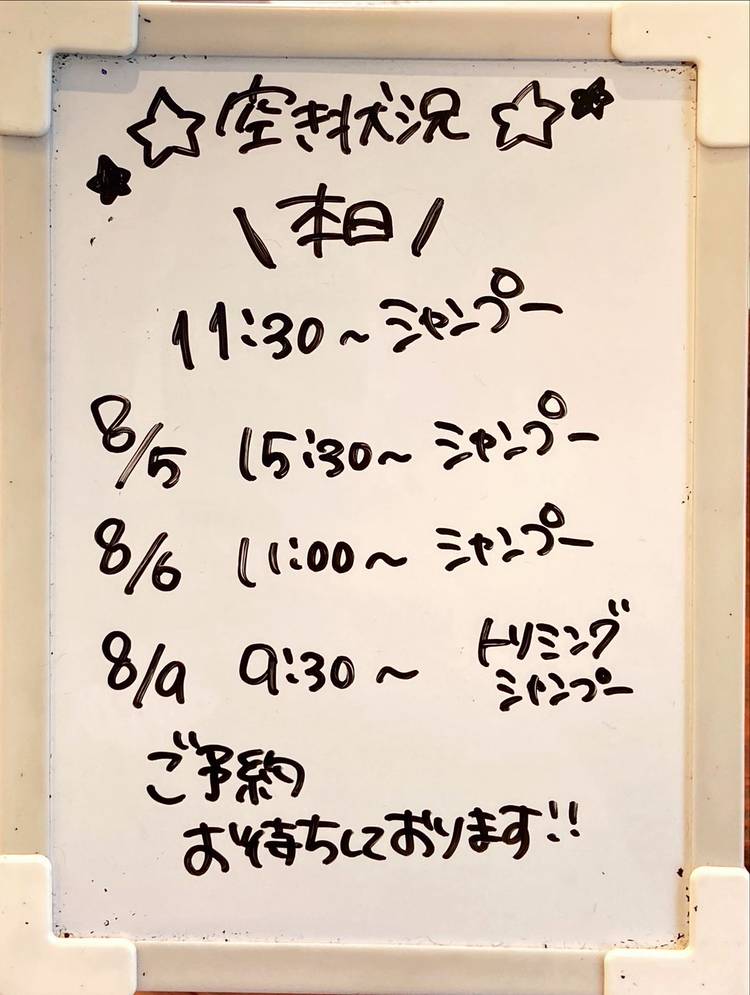 ☆空き状況☆★
★
\ 本日 /
11:30~シャンプー
8/5 15:30~ シャンプー
8/6 11:00~ シャンプー
8/9 9:30~ トリミング
シャンプー
ご予約
お待ちしております!!